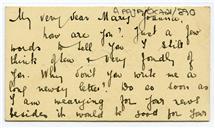 My very dear Mary Joanna,
how are you? Just a few
words to tell you I still
think of you & very fondly of
you. Why don't you write me a
long newsy letter? Do so soon as
I am wearying for your news
besides it would be good for your